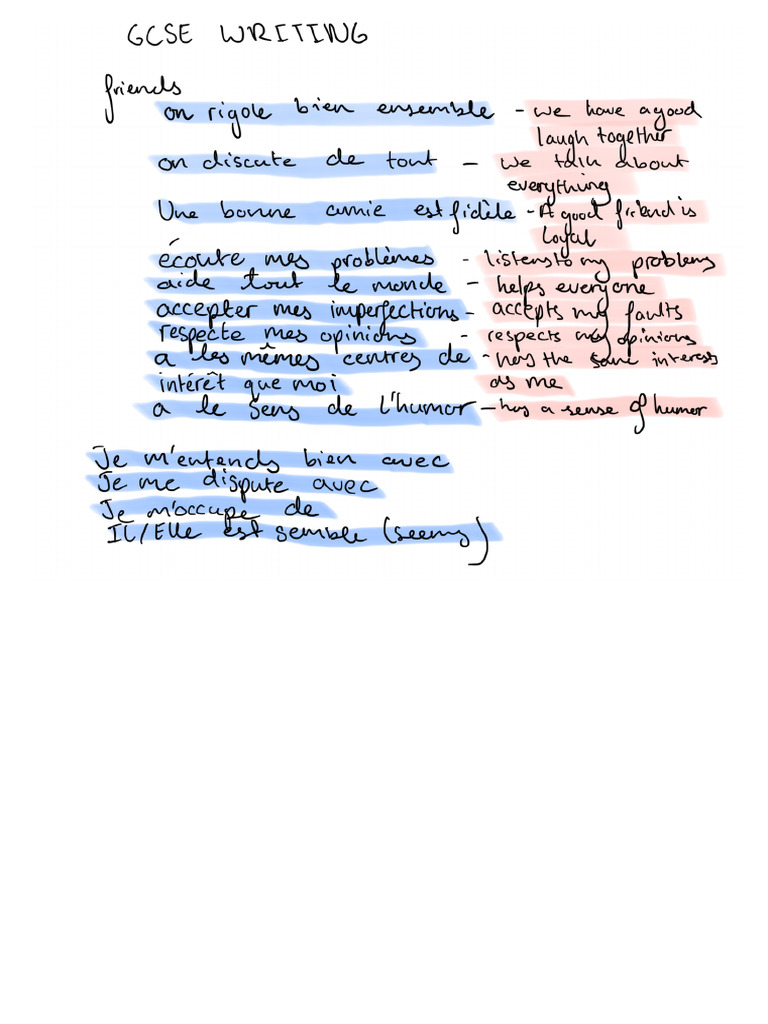 GCSE WRITING
friends
on rigole bien ensemble - we have a good
laugh together
on discute de tout - we talk about
everything
Une bonne amie est fidèle - A good friend is
loyal
écoute mes problèmes - listens to my problems
aide tout le monde - helps everyone
accepter mes imperfections - accepts my faults
respecte mes opinions - respects my opinions
a les mêmes centres de - has the same interests
intérêt que moi as me
a le sens de l'humor - has a sense of humor
Je m'entends bien avec
Je me dispute avec
Je m'occupe de
IL/Elle est semble (seems)